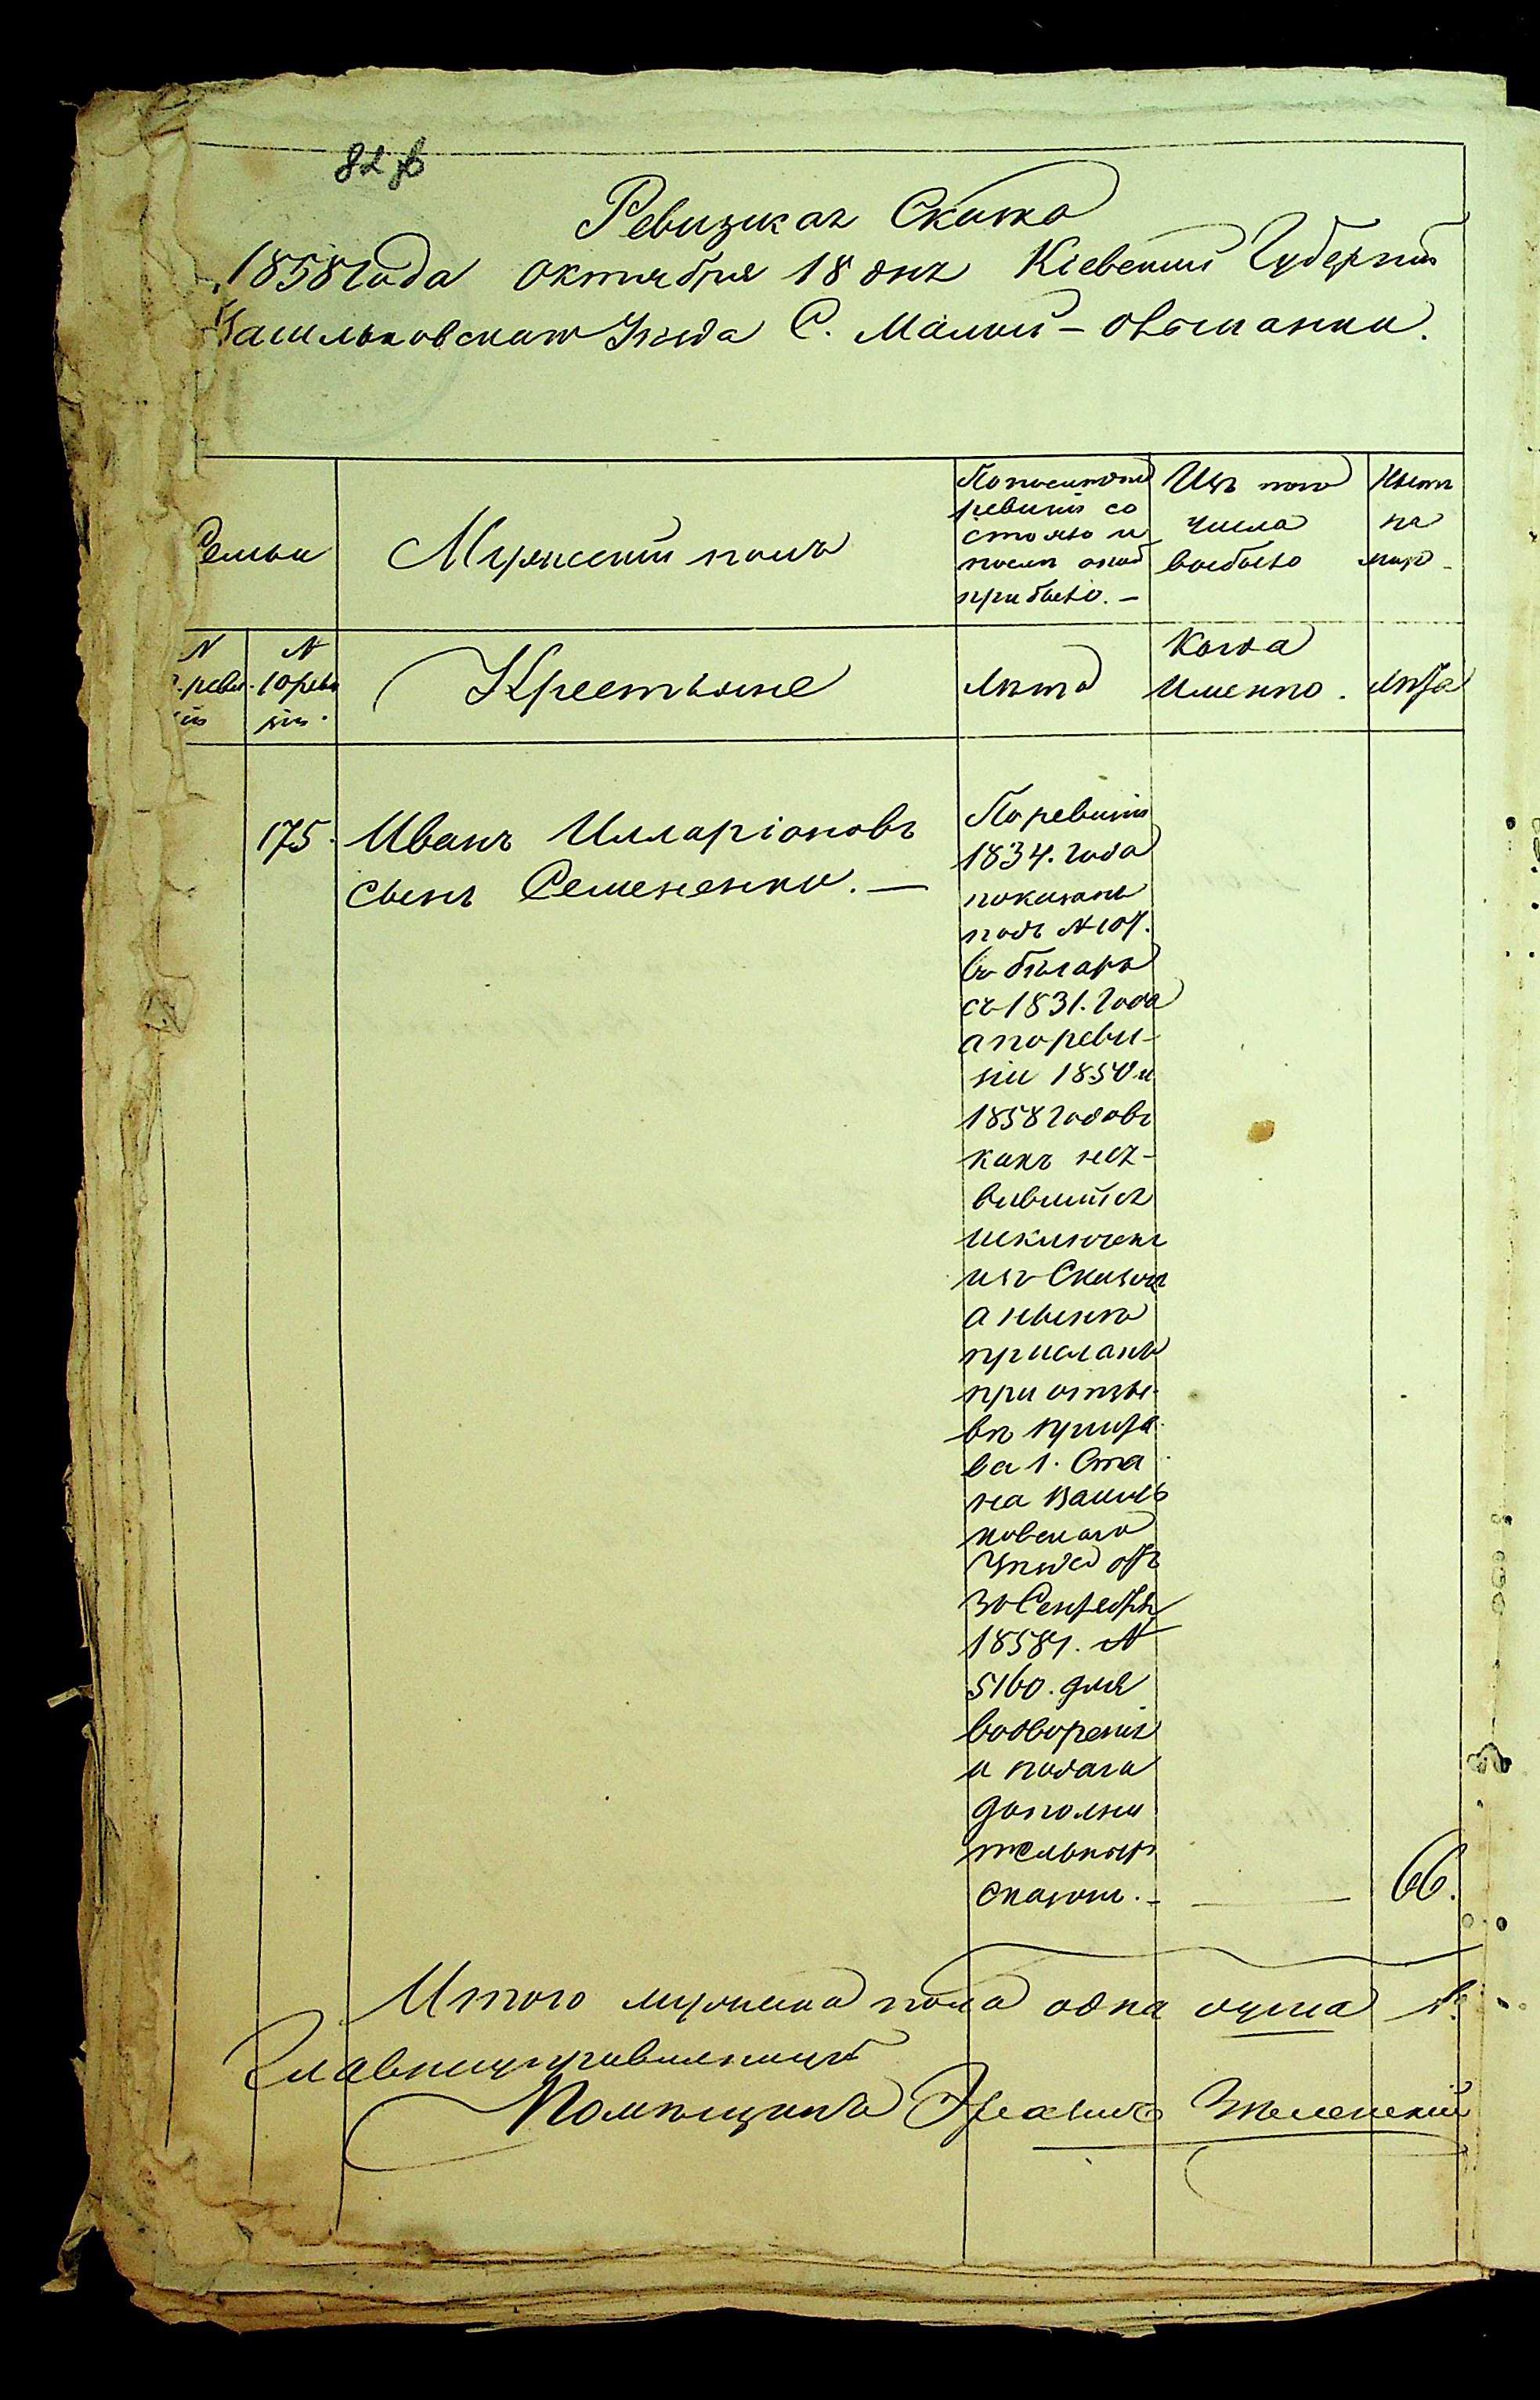 82
Ревизкая Сказка
1858 года октября 18 дня Кіевской Губерніи
Васильковскаго Уезда С. Малой-Овсянки.
Семьи
Мужеский полъ
По последней
ревизіи со
стояло и
после оной
прибыло. -
Изъ того
числа
выбыло
Ныне
на
лицо -
N
реви-
зіи
N
10 реви
зіи.
Крестьяне
Лета
Когда
Именно.
Лета
175. Иванъ Илларіоновъ
сынъ Семененко. —
По ревизіи
1834. года
показанъ
подъ N 107.
въ бегахъ
съ 1831. года
а по реви-
зіи 1850 и
1858 годовъ
какъ нея-
вившійся
исключенъ
изъ Сказокъ
а ныне
присланъ
при отзы-
ве приста-
ва 1. Ста
на Василь
ковскаго
Уезда отъ
30 Сентября
1858 г. N
5160. для
водворенія
и подачи
дополни
тельной
сказки. — 66.
Итого мужеска пола одна душа 1.
Главноуправляющій
Помещика